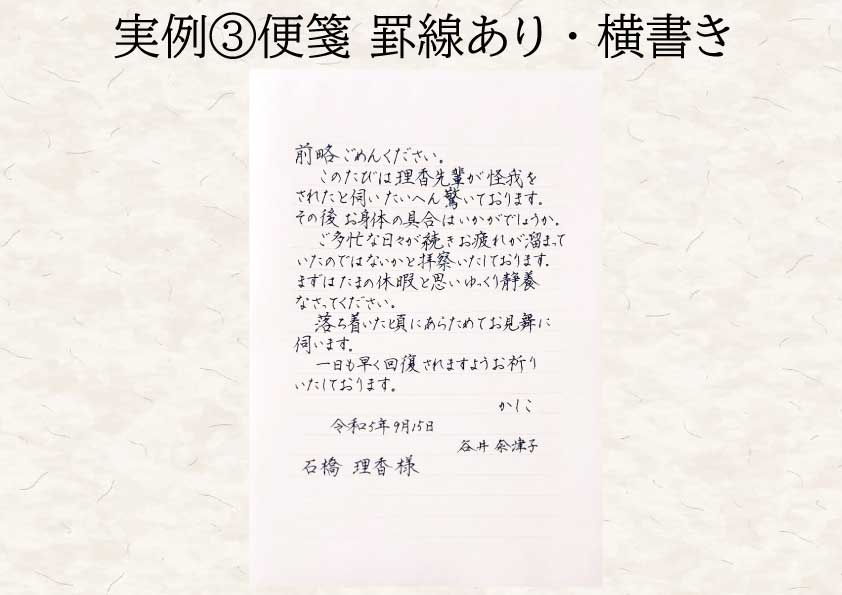 実例③便箋 罫線あり・横書き
前略ごめんください。
このたびは理香先輩が怪我を
されたと伺いたいへん驚いております。
その後お身体の具合はいかがでしょうか。
ご多忙な日々が続きお疲れが溜まって
いたのではないかと拝察いたしております。
まずはたまの休暇と思いゆっくり静養
なさってください。
落ち着いた頃にあらためてお見舞に
伺います。
一日も早く回復されますようお祈り
いたしております。
かしこ
令和5年9月15日
谷井奈津子
石橋 理香様